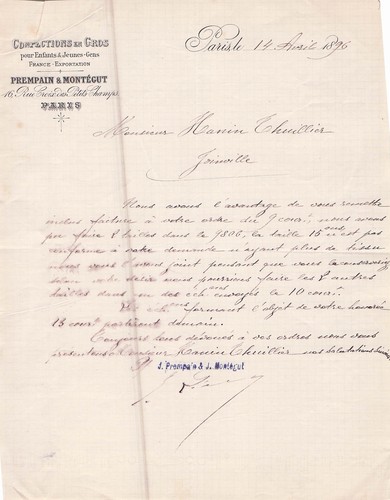 CONFECTIONS EN GROS
pour Enfants & Jeunes-Gens
FRANCE - EXPORTATION
PREMPAIN & MONTÉGUT
16, Rue Croix des Petits Champs
PARIS
Paris le 14 Avril 1896
Monsieur Hanin Thuillier
Joinville
Nous avons l'avantage de vous remettre
inclus facture à votre ordre du 9 cour. nous avons
pu faire 8 tailles dans le 9806, la taille 15 ans n'est pas
conforme à votre demande n'ayant plus de tissu
nous vous l'avons joint pensant que vous la
selon votre désir nous pourrions faire les 8 autres
tailles dans un des envoyés le 10 cour.
formant l'objet de votre honorée
13 cour. partiront demain.
Toujours tous dévoués à vos ordres nous vous
présentons Monsieur Hanin Thuillier nos salutations
J. Prempain & J. Montégut